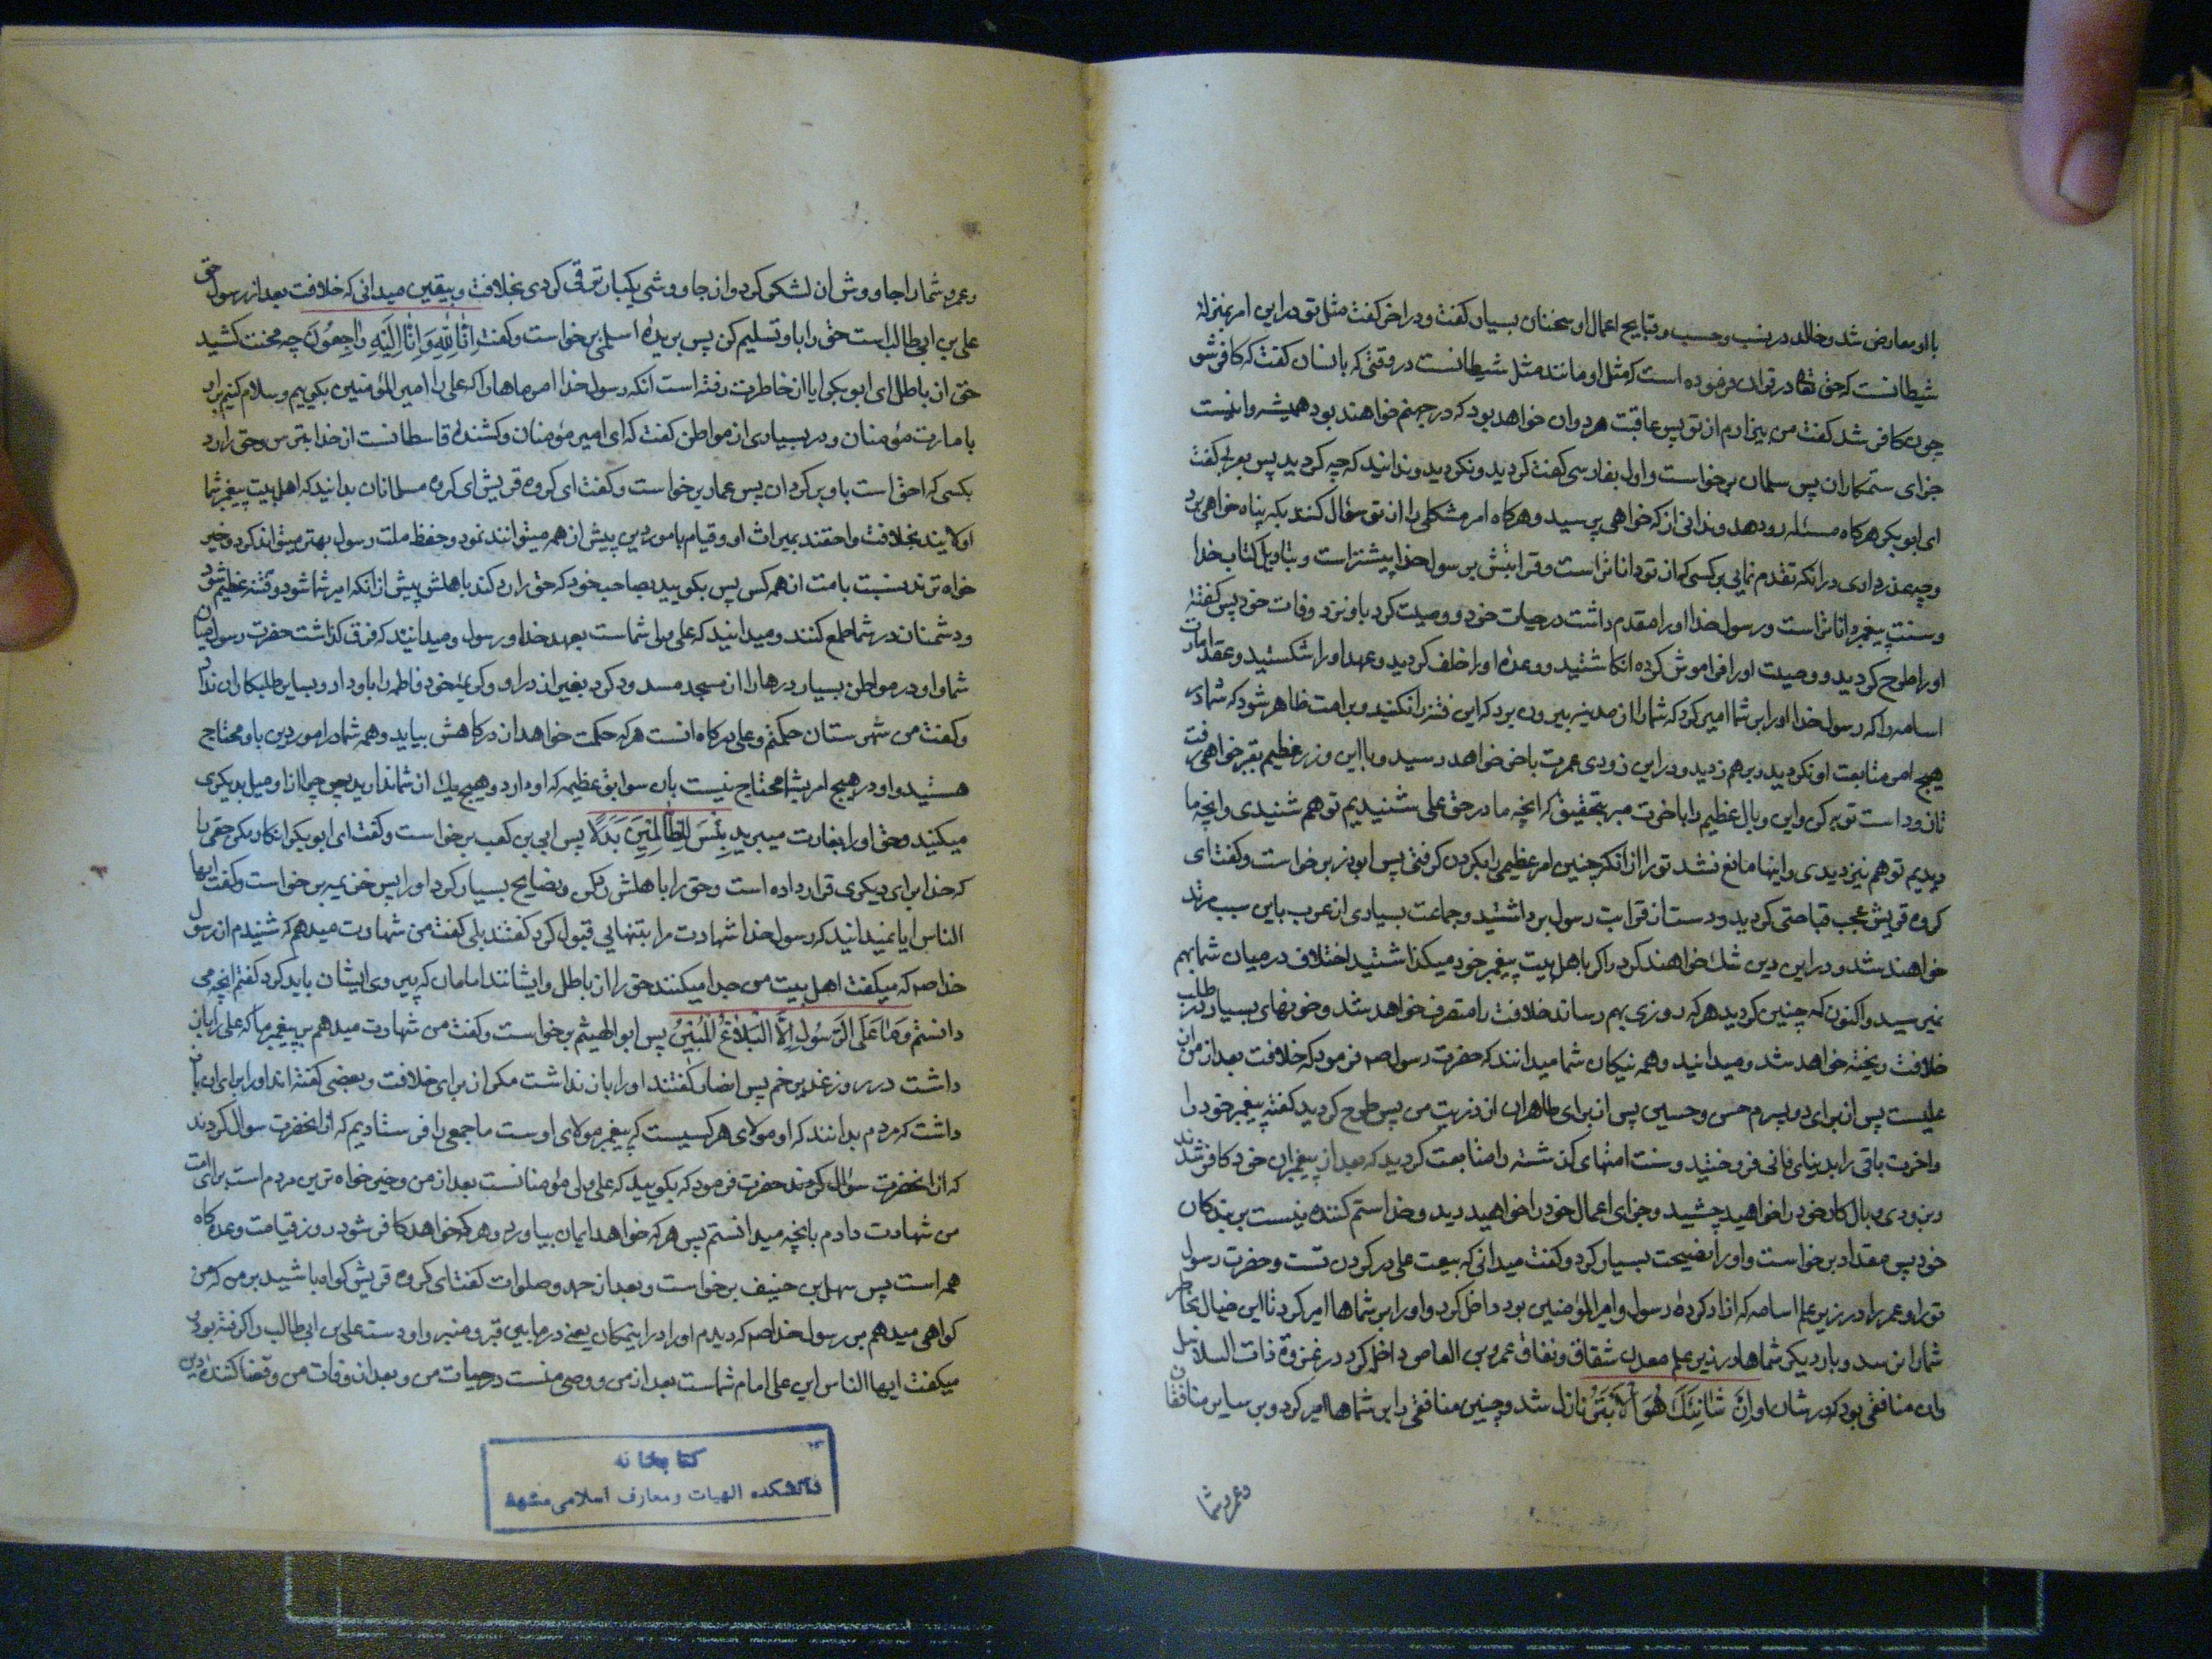 بااو معارض شد و خالد در نسب و حسب و قبایح اعمال او سخنان بسیار کفت و در اخر کفت مثل تو در این امر بمنزلهٔ
شیطانست که حق تعا در قران فرموده است که مثل او مانند مثل شیطانست در وقتی که بانسان کفت که کافر شو
چون کافر شد کفت من بیزارم از تو پس عاقبت هردوان خواهد بود که در جهنم خواهند بود همیشه و اینست
جزای ستمکاران پس سلمان برخواست و اول بفارسی کفت کردید و نکردید و ندانید که چه کردید پس بعربی کفت
ای ابو بکر هرکاه مسئله رو دهد و ندانی از که خواهی پرسید و هرکاه امر مشکلی را از تو سؤال کنند بکه پناه خواهی برد
و چه عذر داری در انکه تقدم نمایی بر کسی که از تو داناتر است و قرابتش برسول خدا پیشتر است و بتاویل کتاب خدا
و سنت پیغمبر داناتر است و رسول خدا او را مقدم داشت در حیات خود و وصیت کرد باو نزد وفات خود پس کفتهٔ
او را طرح کردید و وصیت او را فراموش کرده انکاشتید و وعدهٔ او را خلف کردید و عهد او را شکستید و عقد امارت
اسامه را که رسول خدا او را بر شما امیر کرد که شما را از مدینه بیرون برد که این فتنه را نکنید و بر امت ظاهر شود که شما در
هیچ امر متابعت او نکردید برهم زدید و در این زودی عمرت باخر خواهد رسید و با این وزر عظیم بقبر خواهی رفت
تا زود است توبه کن و این وبال عظیم را باخرت مبر بتحقیق که انچه ما در حق علی شنیدیم تو هم شنیدی و انچه ما
دیدیم تو هم نیز دیدی و اینها مانع نشد تو را از انکه چنین امر عظیمی را بکردن کرفتی پس ابوذر برخواست و کفت ای
کروه قریش عجب قباحتی کردید و دست از قرابت رسول برداشتید و جماعت بسیاری از عرب باین سبب مرتد
خواهند شد و در این دین شک خواهند کرد و اکر باهل بیت پیغمبر خود میکذاشتید اختلاف در میان شما بهم
نمیرسید و اکنون که چنین کردید هرکه زوری بهم رساند خلافت را متصرف خواهد شد و خونهای بسیار در طلب
خلافت ریخته خواهد شد و میدانید و همه نیکان شما میدانند که حضرت رسول صه فرمود که خلافت بعد از من از
علیست پس از برای دو پسرم حسن و حسین پس از برای طاهران از ذریت من پس طرح کردید کفته پیغمبر خود را
و اخرت باقی را بدنیای فانی فروختید و سنت امتهای کذشته را متابعت کردید که بعد از پیغمبران خود کافر شدند
و بزودی وبال کار خود را خواهید چشید و جزای اعمال خود را خواهید دید و خدا ستم کننده نیست بر بندکان
خود پس مقداد برخواست و او را نصیحت بسیار کرد و کفت میدانی که بیعت علی در کردن تست و حضرت رسول
تو را و عمر را در زیر علم اسامه که ازاد کردهٔ رسول و امیر المؤمنین بود داخل کرد و او را بر شماها امیر کرد تا این خیال بخاطر
شما را نرسد و بار دیکر شماها در زیر علم معدن شقاق و نفاق عمرو بن العاص داخل کرد در غزوهٔ ذات السلاسل
وان منافقی بود که در شان او اِنَّ شَانِئَكَ هُوَ الْأَبْتَرُ نازل شد و چنین منافقی را بر شماها امیر کرد و بر سایر منافقان
و عمرو شما
و عمرو شما را جاووش ان لشکر کرد و از جاووشی یکبار ترقی کردی بخلافت و بیقین میدانی که خلافت بعد از رسول حق
علی بن ابی طالب است حق را باو تسلیم کن پس بریدهٔ اسلمی برخواست و کفت اِنَّا لِلّٰهِ وَ اِنَّا اِلَیْهِ رَاجِعُونَ چه محنت کشید
حق از باطل ای ابو بکر ایا از خاطرت رفته است انکه رسول خدا امر ما ها را که علی را امیر المؤمنین بکوییم و سلام کنیم براو
بامارت مؤمنان و در بسیاری از مواطن کفت که ای امیر مؤمنان و کشندهٔ قاسطانست از خدا بترس و حق را رد
بکسی که احق است باو برکردان پس عمار برخواست و کفت ای کروه قریش ای کروه مسلمانان بدانید که اهل بیت پیغمبر شما
اولایند بخلافت و احقند بمیراث او و قیام بامور دین پیش از همه میتوانند نمود و حفظ ملت رسول بهتر میتوانند کرد و خیر
خواه ترند نسبت بامت از همه کس پس بکویید بصاحب خود که حق را رد کند باهلش پیش از انکه امیر شما شود و فتنه عظیم شود
و دشمنان در شما طمع کنند و میدانید که علی ولی شماست بعهد خدا و رسول و میدانید که فرق کذاشت حضرت رسول میان
شما و او در مواطن بسیار درها را از مسجد مسدود کرد بغیر از در او و کریمهٔ خود فاطمه را باو داد و بسایر طلبکاران نداد
و کفت من شهرستان حکمتم و علی درکاه انست هرکه حکمت خواهد از درکاهش بیاید و همه شما در امور دین باو محتاج
هستید و او در هیچ امر بشما محتاج نیست بان سوابق عظیمه که او دارد و هیچ یک از شما ندارید پس چرا از او میل بدیکری
میکنید و حق او را بغارت میبرید بِئْسَ لِلظَّالِمِینَ بَدَلًا پس ابی بن کعب برخواست و کفت ای ابو بکر انکار مکن حقی را
که خدا برای دیکری قرار داده است و حق را باهلش رد کن و نصایح بسیار کرد او را پس خزیمه برخواست و کفت ایها
الناس ایا نمیدانید که رسول خدا شهادت مرا بتنهایی قبول کرد کفتند بلی کفت من شهادت میدهم که شنیدم از رسول
خدا صه که میکفت اهل بیت من جدا میکنند حق را از باطل و ایشانند امامان که پیروی ایشان باید کرد کفتم انچه می
دانستم وَ مَا عَلَی الرَّسُولِ اِلَّا الْبَلَاغُ الْمُبِینُ پس ابو الهیثم برخواست و کفت من شهادت میدهم بر پیغمبر ما که علی را باز
داشت در روز غدیر خم پس انصار کفتند او را باز نداشت مکر از برای خلافت و بعضی کفته اند او را برای ان باز
داشت که مردم بدانند که او مولای هر کسیست که پیغمبر مولای اوست ما جمعی را فرستادیم که از انحضرت سوال کردند
که از انحضرت سؤال کردند حضرت فرمود که بکویید که علی ولی مؤمنانست بعد از من و خیر خواه ترین مردم است برای امت
من شهادت دادم بانچه میدانستم پس هرکه خواهد ایمان بیاورد و هرکه خواهد کافر شود روز قیامت وعده کاه
همه است پس سهل بن حنیف برخواست و بعد از حمد و صلوات کفت ای کروه قریش کواه باشید بر من که من
کواهی میدهم بر رسول خدا صه که دیدم او را در اینمکان یعنی در مابین قبر و منبر و او دست علی بن ابی طالب را کرفته بود و
میکفت ایها الناس این علی امام شماست بعد از من و وصی منست در حیات من و بعد از وفات من و قضا کنندهٔ دین
کتابخانه
دانشکده الهیات و معارف اسلامی مشهد